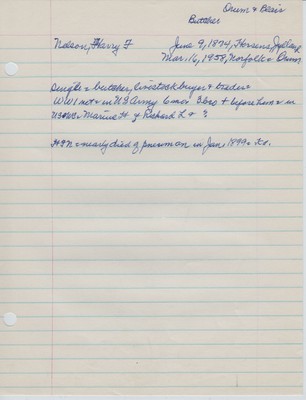 Orum & Beris
Butcher
Nelson, Harry F June 9, 1874, Horsens, Jylland
Mar. 16, 1958, Norfolk Orum
Single butcher, livestock buyer & trader
WWI not in US Army 6 mos 3 bro before him in
US Marine H Richard L & ?
HFN nearly died of pneumon in Jan 1899